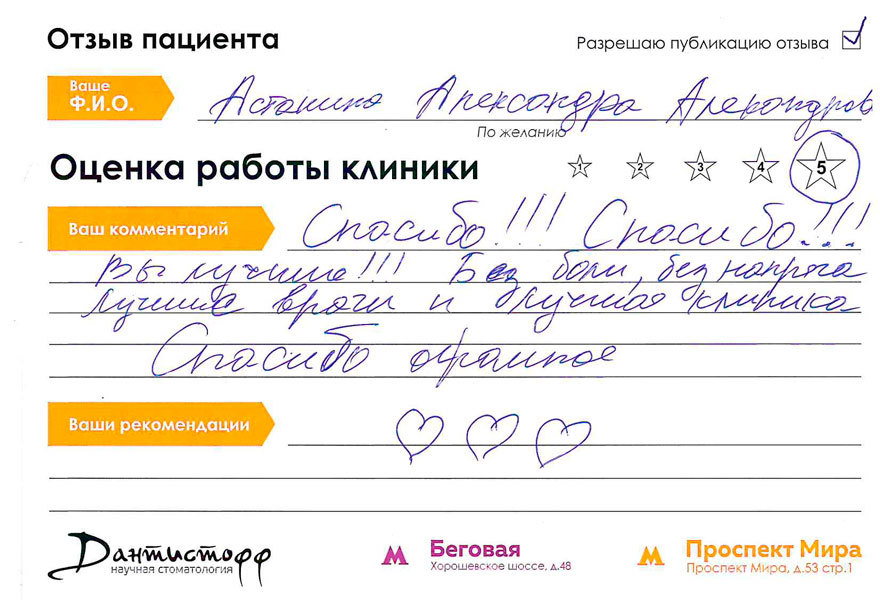 Отзыв пациента
Разрешаю публикацию отзыва
Ваше
Ф.И.О.
Астанина Александра Александров
По желанию
Оценка работы клиники
1 2 3 4 5
Ваш комментарий
Спасибо!!! Спасибо!!!
Вы лучшие!!! Без боли, без напряга
Лучшие врачи и лучшая клиника
Спасибо огромное
Ваши рекомендации
Дантистофф
научная стоматология
Беговая
Хорошевское шоссе, д.48
Проспект Мира
Проспект Мира, д.53 стр.1